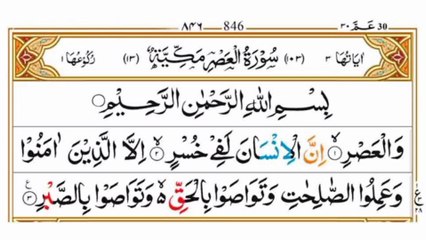 ٨٤٦ 846 عَمَّ ٣٠ 30
اٰیَاتُهَا ٣ (١٠٣) سُوْرَةُ الْعَصْرِ مَكِّیَّةٌ (١٣) رُكُوْعُهَا ١
بِسْمِ اللهِ الرَّحْمٰنِ الرَّحِیْمِ
وَالْعَصْرِ ۙ﴿١﴾ اِنَّ الْاِنْسَانَ لَفِیْ خُسْرٍ ۙ﴿٢﴾ اِلَّا الَّذِیْنَ اٰمَنُوْا
وَعَمِلُوا الصّٰلِحٰتِ وَتَوَاصَوْا بِالْحَقِّ ۙ۬ وَتَوَاصَوْا بِالصَّبْرِ ﴿٣﴾ ع